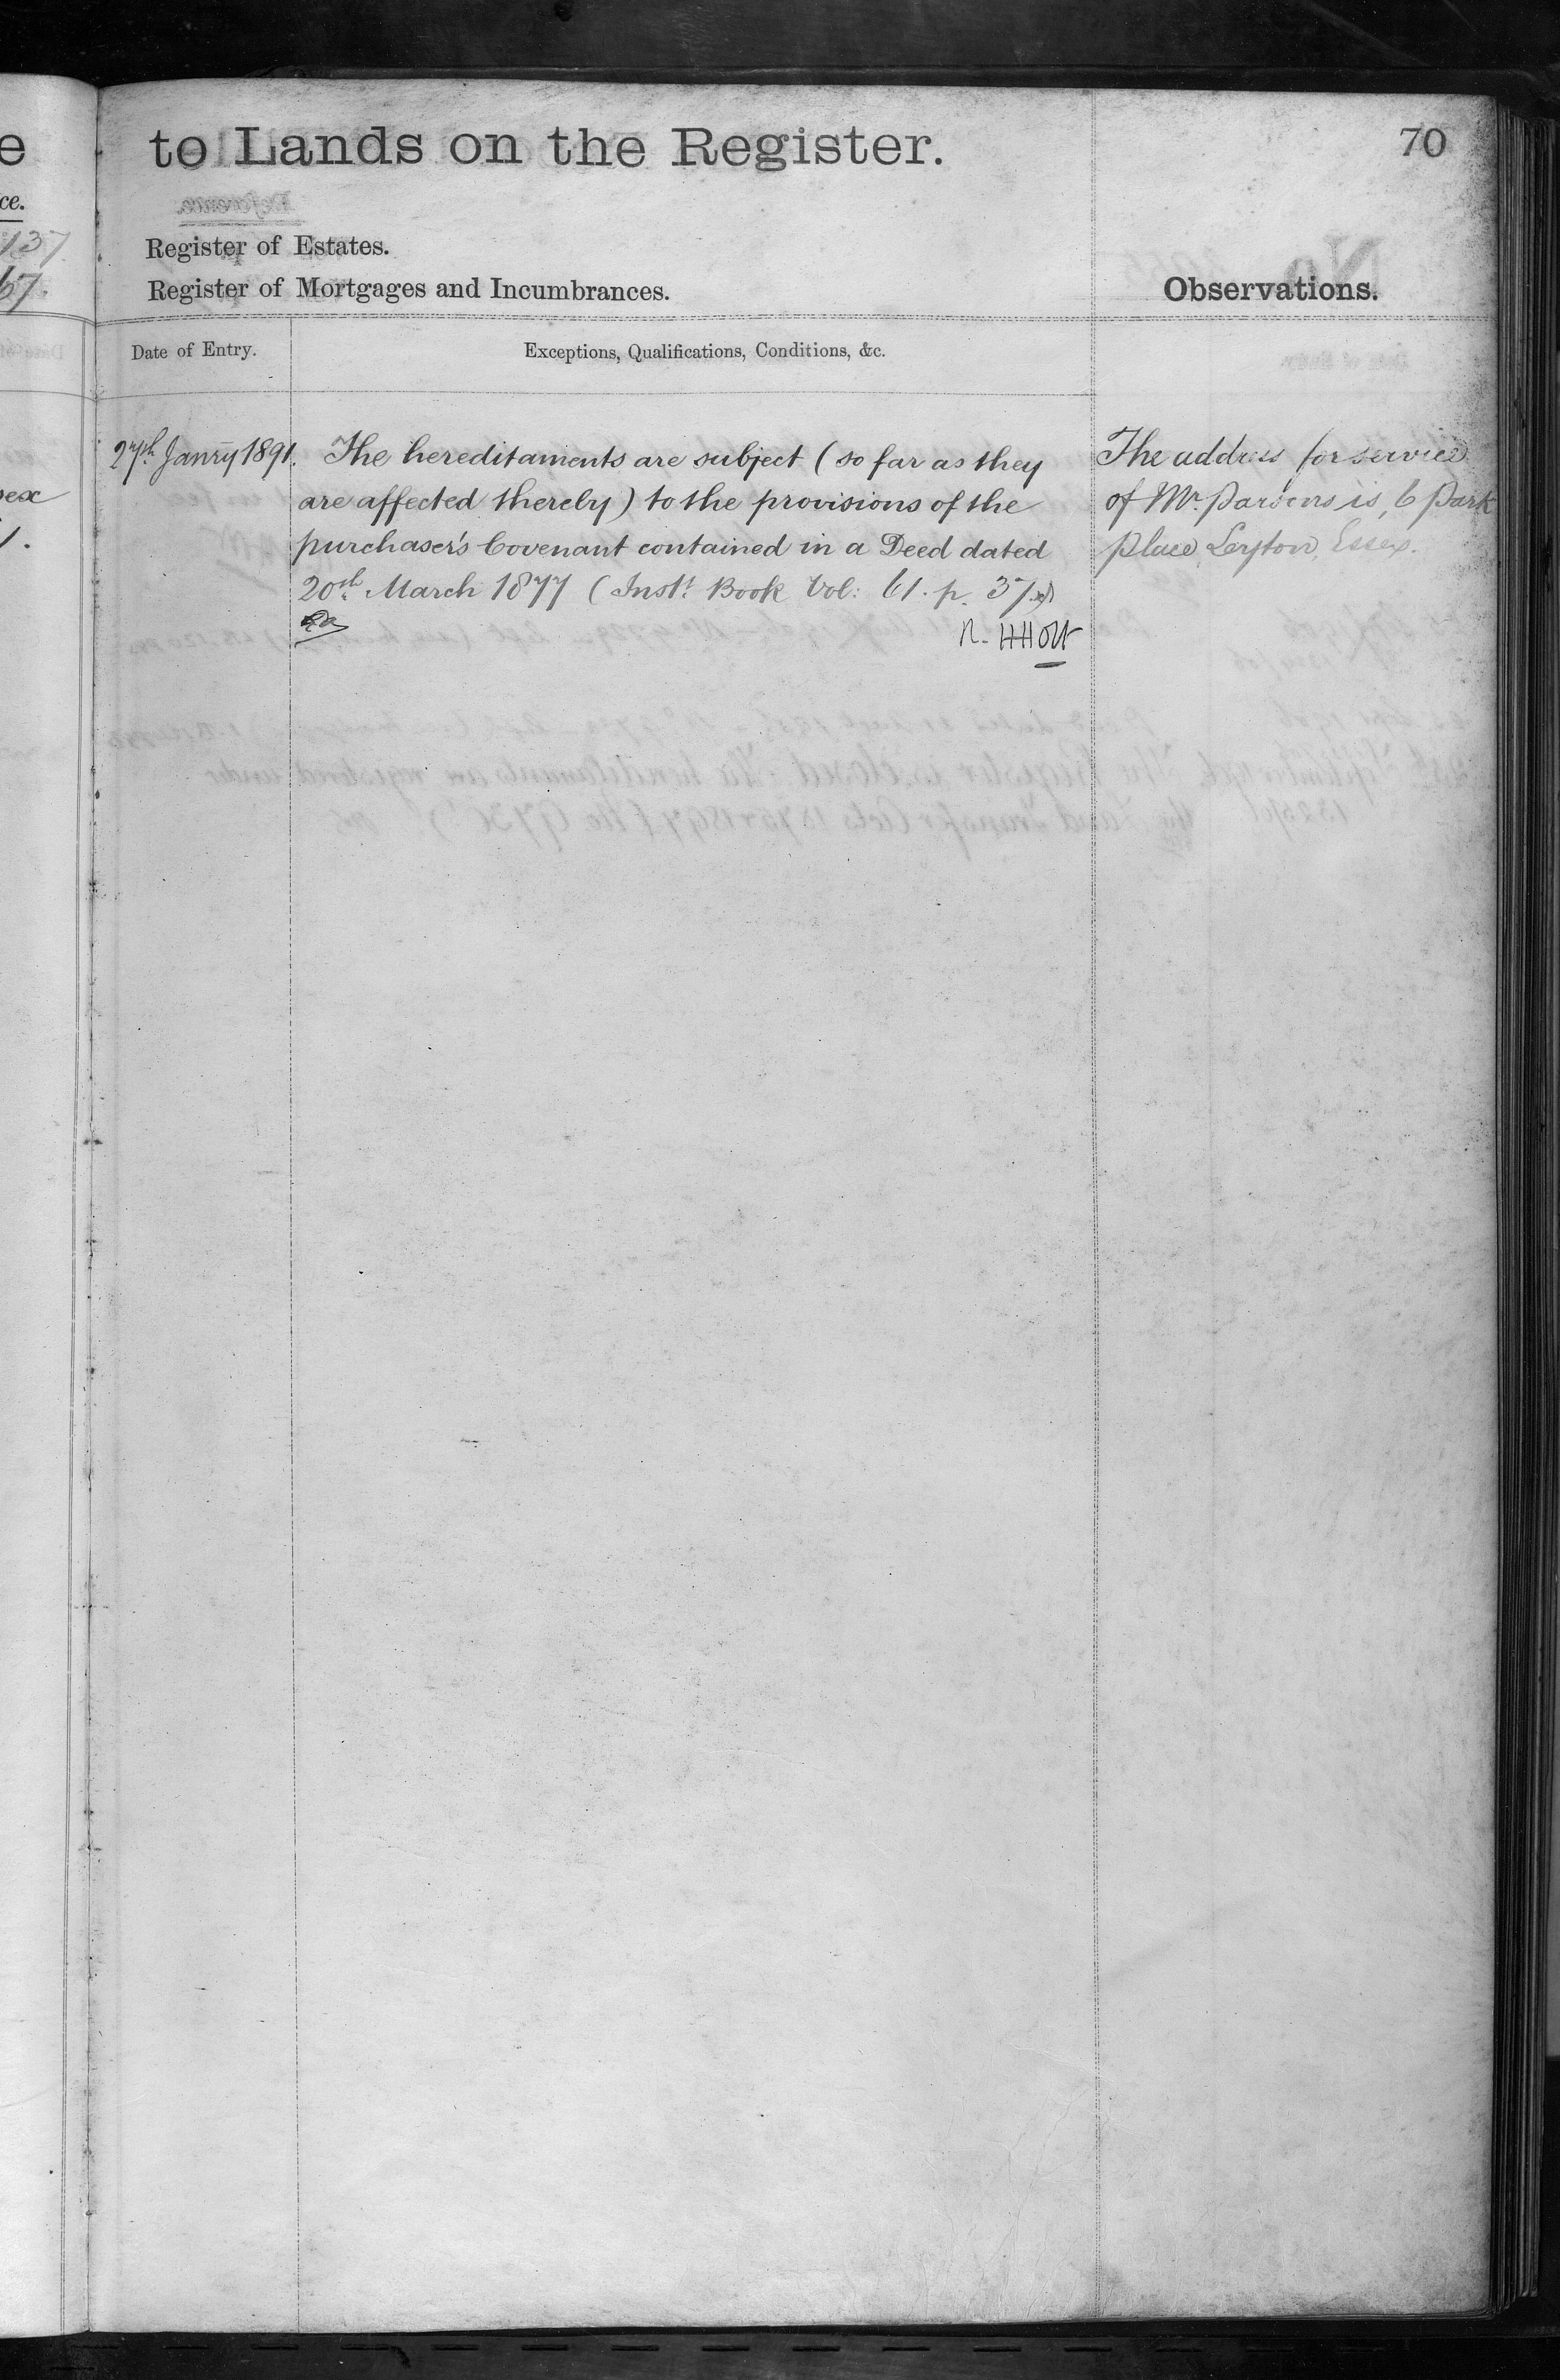 e
ce.
137
67.
sex
1.
to Lands on the Register.
70
Register of Estates.
Register of Mortgages and Incumbrances.
Observations.
Date of Entry.
Exceptions, Qualifications, Conditions, &c.
27th Janry 1891.
The hereditaments are subject (so far as they
are affected thereby) to the provisions of the
purchaser's Covenant contained in a Deed dated
20th March 1877 (Inst: Book Vol: 61. p. 37
R. HHolt
The address for service
of Mr. Parsons is, 6 Park
place, Leyton, Essex.